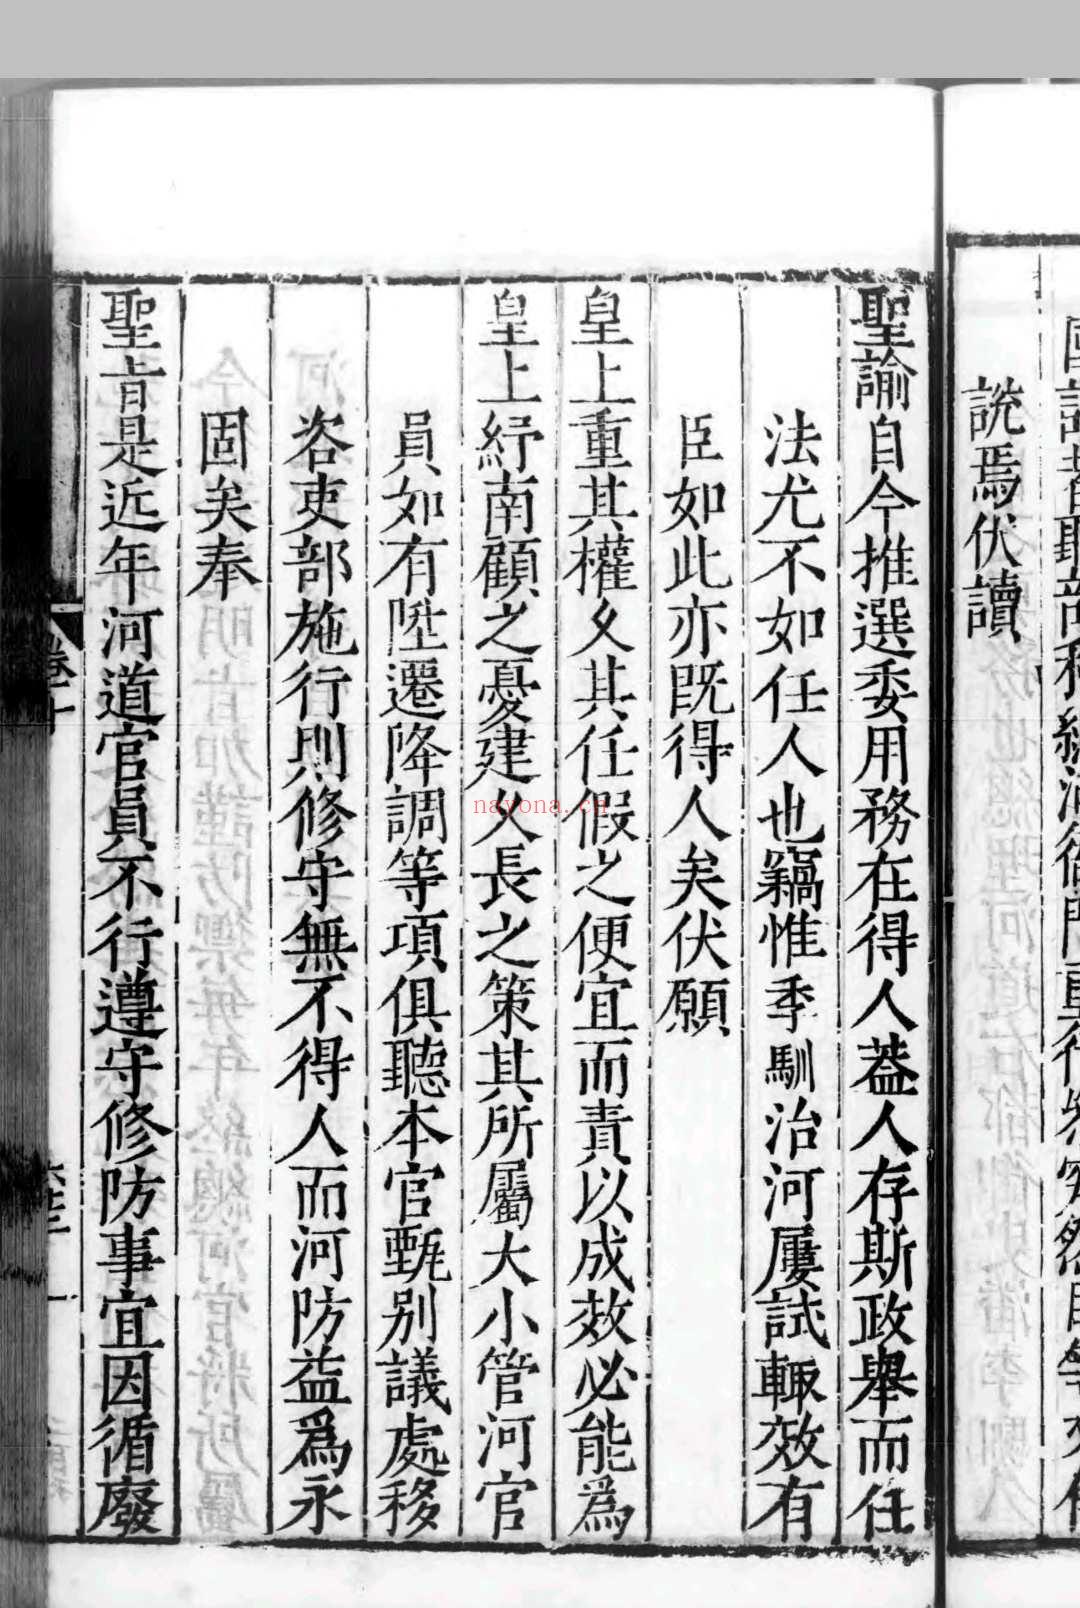 說焉伏讀
聖諭自今推選委用務在得人葢人存斯政舉而任
法尤不如任人也竊惟季馴治河屢試輙效有
臣如此亦既得人矣伏願
皇上重其權久其任假之便宜而責以成效必能爲
皇上紓南顧之憂建久長之策其所屬大小管河官
員如有陞遷降調等項俱聽本官甄别議處移
咨吏部施行則修守無不得人而河防益爲永
固矣奉
聖旨是近年河道官員不行遵守修防事宜因循廢
nayona.cn